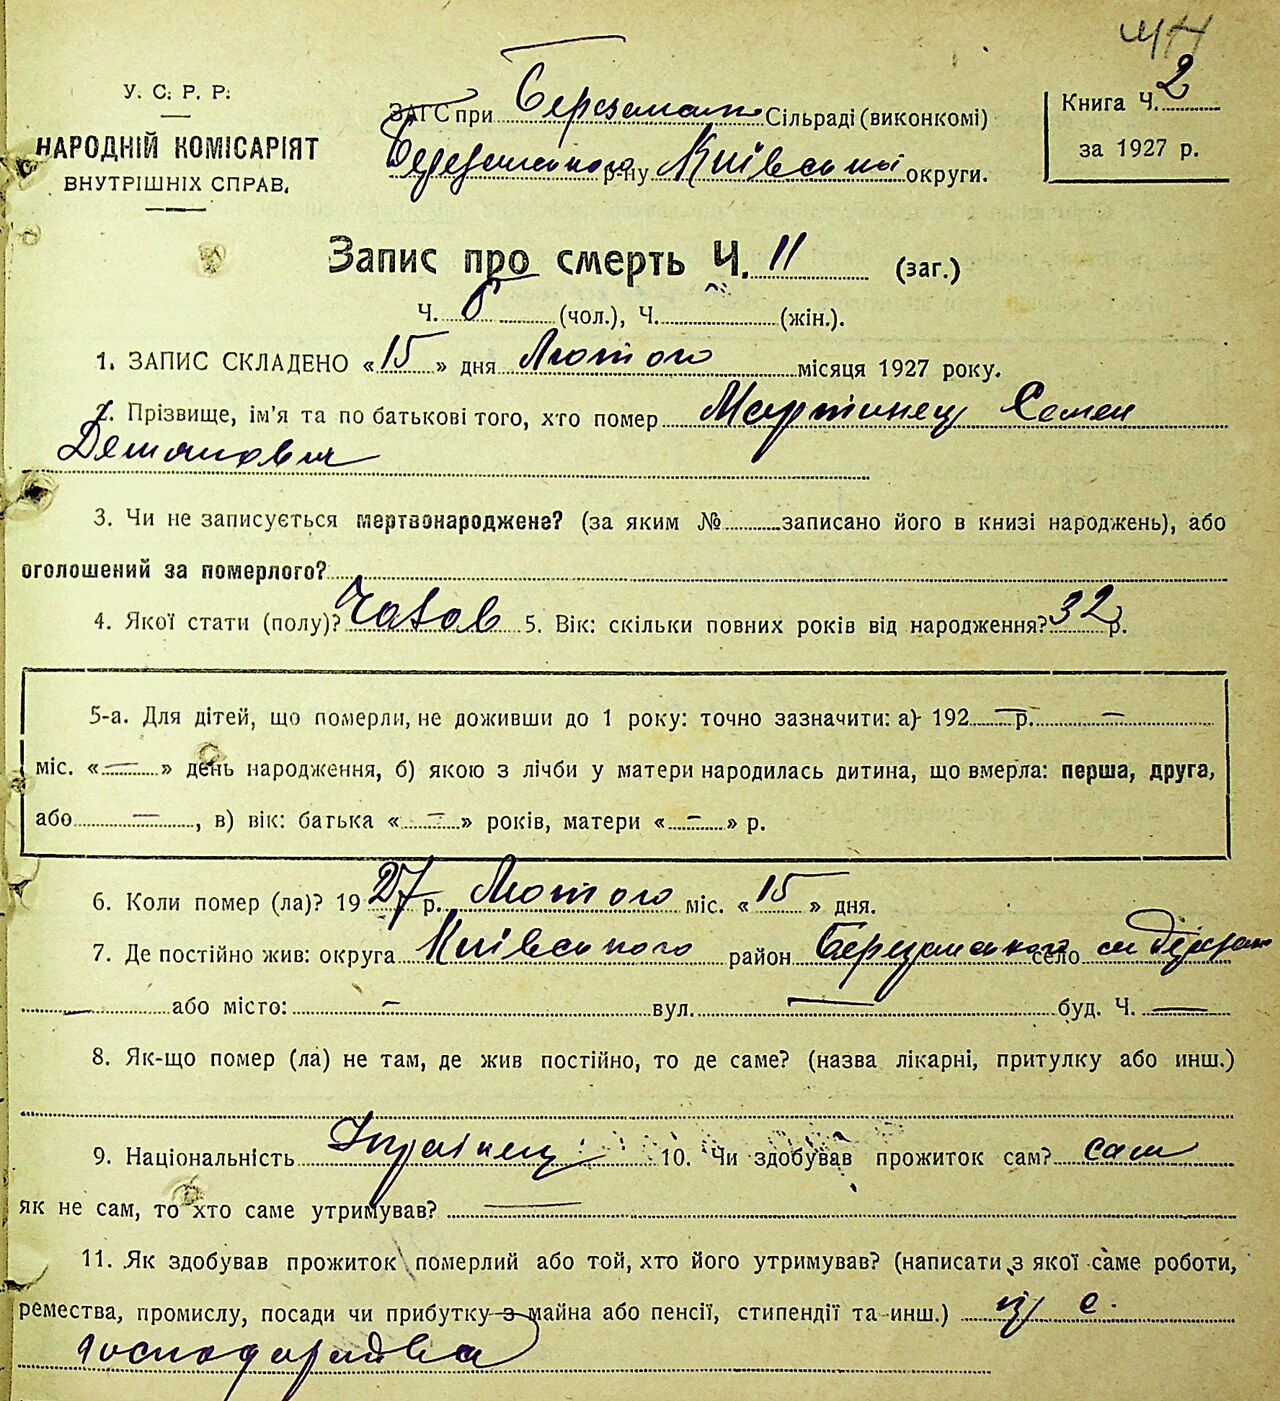 У. С. Р. Р.
НАРОДНІЙ КОМІСАРІЯТ
ВНУТРІШНІХ СПРАВ.
ЗАГС при Березанськ Сільраді (виконкомі)
Березанського р-ну Київської округи.
Книга Ч. 2
за 1927 р.
Запис про смерть Ч. 11 (заг.)
Ч. 6 (чол.), Ч. (жін.).
1. ЗАПИС СКЛАДЕНО «15» дня Лютого місяця 1927 року.
2. Прізвище, ім'я та по батькові того, хто помер Мартинец Семен
Демянович
3. Чи не записується мертвонароджене? (за яким № записано його в книзі народжень), або
оголошений за померлого?
4. Якої стати (полу)? Чолов 5. Вік: скільки повних років від народження? 32 р.
5-а. Для дітей, що померли, не доживши до 1 року: точно зазначити: а) 192 — р. —
міс. « — » день народження, б) якою з лічби у матери народилась дитина, що вмерла: перша, друга,
або — , в) вік: батька « — » років, матери « — » р.
6. Коли помер (ла)? 1927 р. Лютого міс. «15» дня.
7. Де постійно жив: округа Київського район Березанського село
— або місто: — вул. — буд. Ч. —
8. Як-що помер (ла) не там, де жив постійно, то де саме? (назва лікарні, притулку або инш.)
9. Національність Українец 10. Чи здобував прожиток сам? сам
як не сам, то хто саме утримував? —
11. Як здобував прожиток померлий або той, хто його утримував? (написати з якої саме роботи,
ремества, промислу, посади чи прибутку з майна або пенсії, стипендії та инш.) із с.
господарства